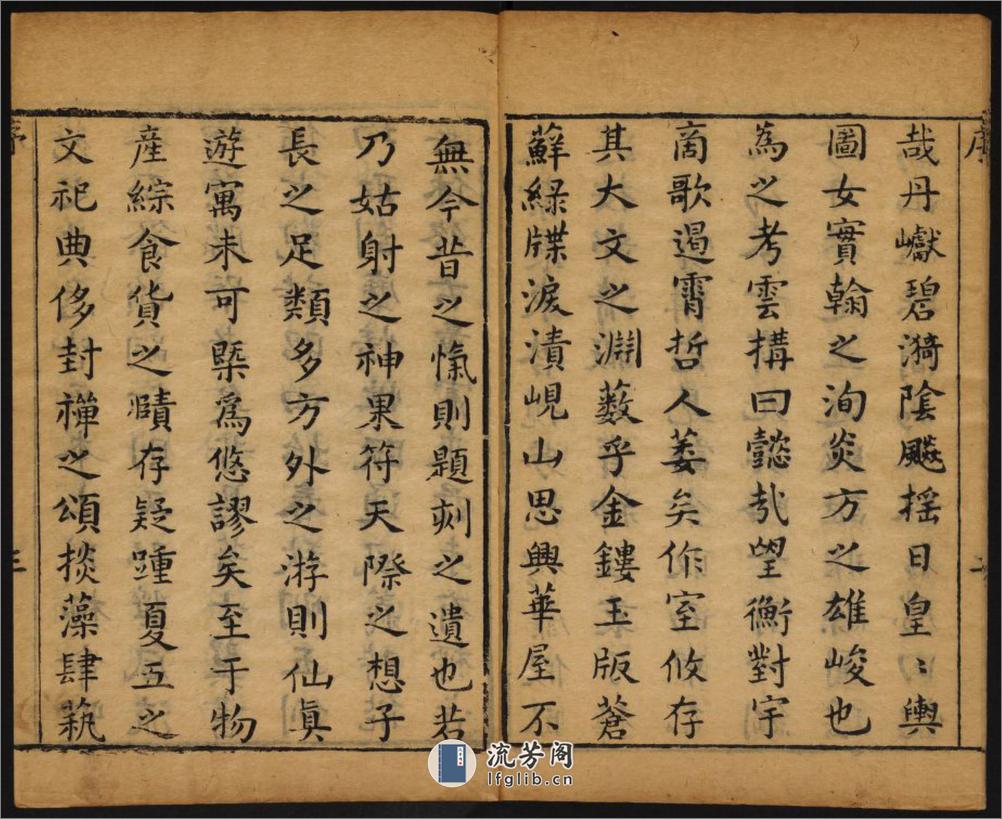 序
哉丹巘碧漪陰飈搖日皇〻輿
圖女實翰之洵炎方之雄峻也
為之考雲搆曰懿㢤望衡對宇
啇歌遏霄哲人萎矣作室攸存
其大文之淵藪乎金鏤玉版蒼
蘚綠牒淚漬峴山思興華屋不
無今昔之愾則題刻之遺也若
乃姑射之神果符天際之想子
長之足類多方外之游則仙眞
遊寓未可槩爲悠謬矣至于物
産綜食貨之賾存疑踵夏五之
文祀典侈封禪之頌掞藻肆蓺
序
三
流芳阁
lfglib.cn